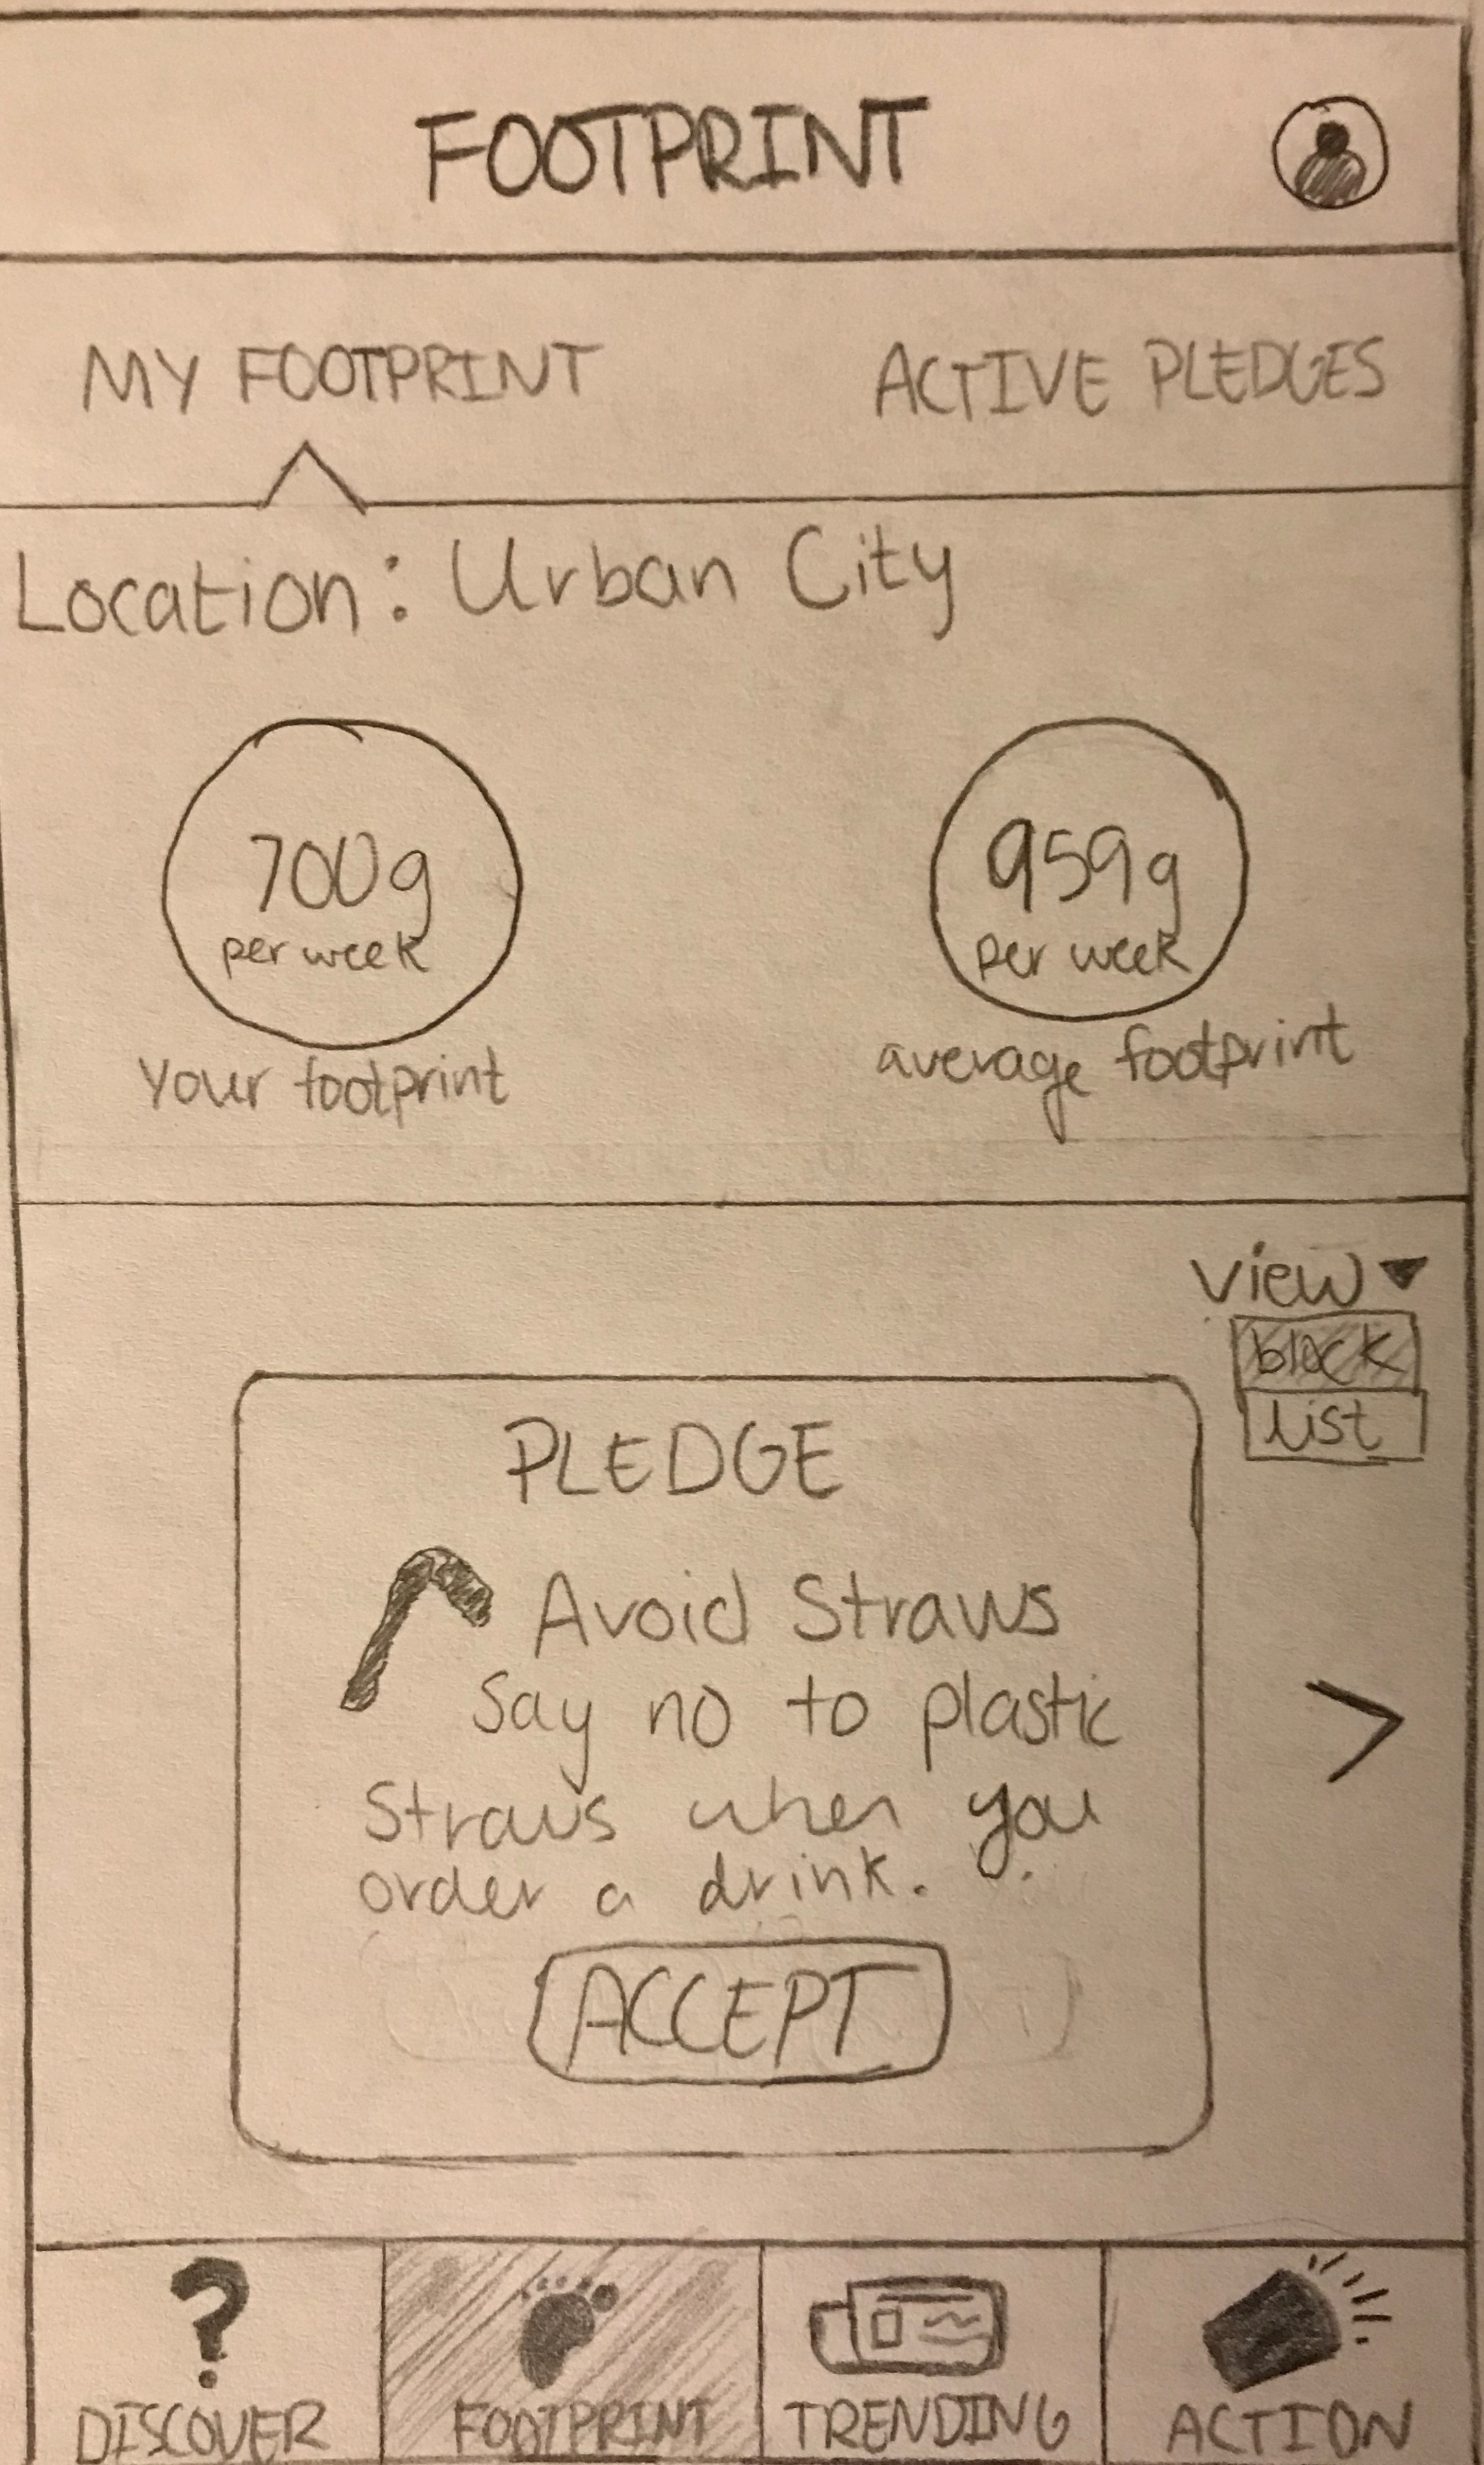 FOOTPRINT
MY FOOTPRINT ACTIVE PLEDGES
Location: Urban City
700g 959g
per week per week
Your footprint average footprint
view
block
list
PLEDGE
Avoid Straws
Say no to plastic
Straws when you
order a drink.
ACCEPT
DISCOVER FOOTPRINT TRENDING ACTION